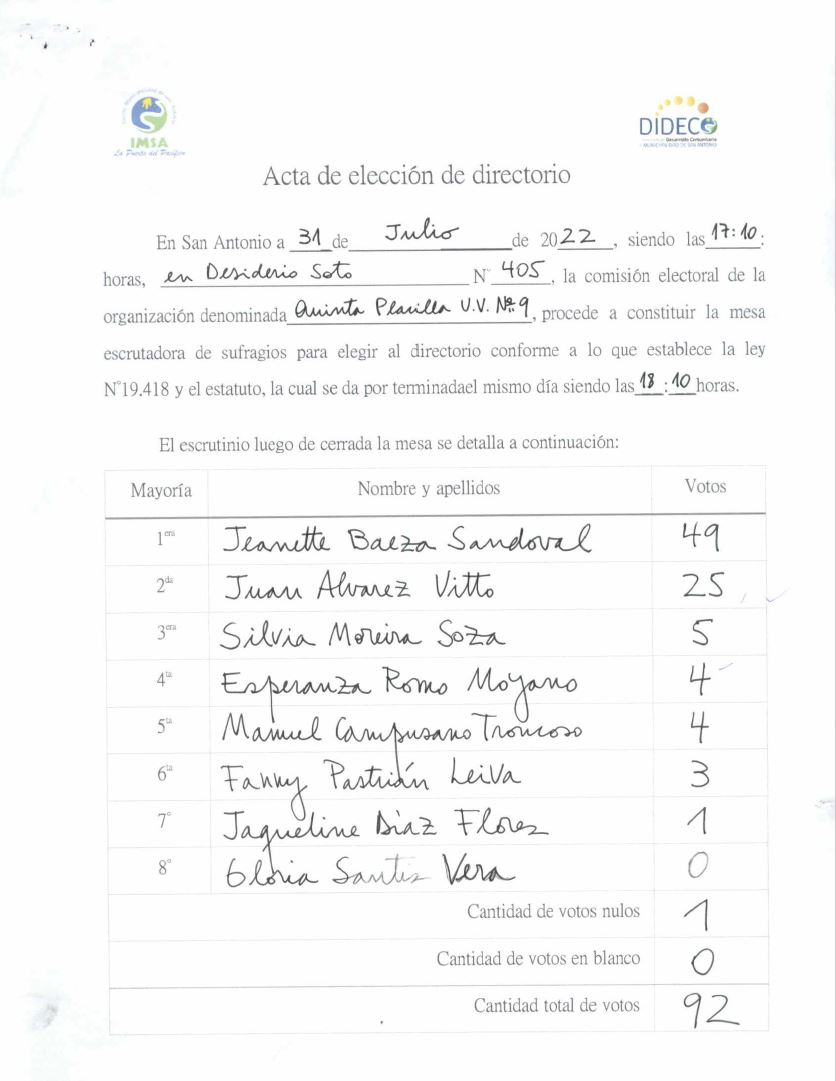 IMSA
La Puerta del Pacífico
DIDECO
Desarrollo Comunitario
Acta de elección de directorio
En San Antonio a 31 de Julio de 2022, siendo las 17:10:
horas, en Desiderio Soto N° 405, la comisión electoral de la
organización denominada Quinta Placilla U.V. N° 9, procede a constituir la mesa
escrutadora de sufragios para elegir al directorio conforme a lo que establece la ley
N°19.418 y el estatuto, la cual se da por terminadael mismo día siendo las 18:10 horas.
El escrutinio luego de cerrada la mesa se detalla a continuación:
Mayoría Nombre y apellidos Votos
1era Jeanette Baeza Sandoval 49
2da Juan Alvarez Vitto 25
3era Silvia Moreira Soza 5
4ta Esperanza Romo Moyano 4
5ta Manuel Campusano Troncoso 4
6ta Fanny Pastrián Leiva 3
7° Jaqueline Diaz Flores 1
8° Gloria Santis Vera 0
Cantidad de votos nulos 1
Cantidad de votos en blanco 0
Cantidad total de votos 92